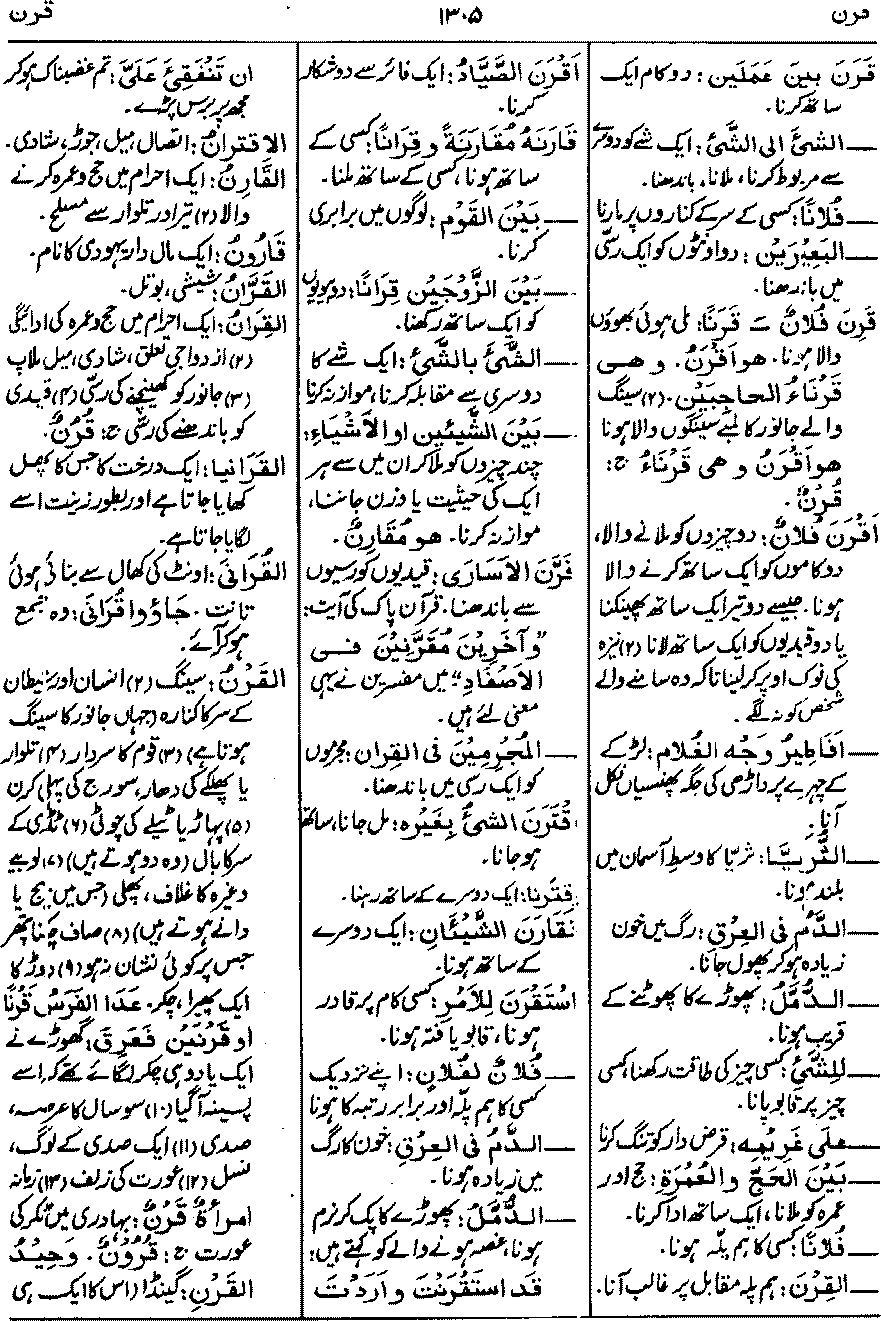 قرن
۱۳۰۵
قرن
قَرَنَ بینَ عَمَلَین: دو کام ایک
ساتھ کرنا۔
— الشئَ الی الشَّئ: ایک شے کو دوسرے
سے مربوط کرنا، ملانا، باندھنا۔
— فُلانًا: کسی کے سر کے کناروں پر مارنا
— البَعِیْرَیْنِ: دو اونٹوں کو ایک رسّی
میں باندھنا۔
قَرِنَ فُلانٌ ـَ قَرَنًا: ملی ہوئی بھوؤں
والا ہونا۔ ھو اَقْرَنُ۔ و ھی
قَرْنَاءُ الحاجِبَیْن۔ (۲) سینگ
والے جانور کا لمبے سینگوں والا ہونا
ھو اَقْرَنُ و ھی قَرْنَاءُ ج:
قُرْنٌ۔
اَقْرَنَ فُلانٌ: دو چیزوں کو ملانے والا،
دو کاموں کو ایک ساتھ کرنے والا
ہونا۔ جیسے دو تیر ایک ساتھ پھینکنا
یا دو قیدیوں کو ایک ساتھ لانا (۲) نیزہ
کی نوک اوپر کر لینا تاکہ وہ سامنے والے
شخص کو نہ لگے۔
— اَفَاطِیرُ وَجْہِ الغُلام: لڑکے
کے چہرے پر داڑھی کی جگہ پھنسیاں نکل
آنا۔
— الثُّرَیَّا: ثریّا کا وسطِ آسمان میں
بلند ہونا۔
— الدَّمُ فی العِرْقِ: رگ میں خون
زیادہ ہو کر پھول جانا۔
— الدُّمَّلُ: پھوڑے کا پھوٹنے کے
قریب ہونا۔
— لِلشَّئِ: کسی چیز کی طاقت رکھنا، کسی
چیز پر قابو پانا۔
— علی غَرِیْمِہ: قرض دار کو تنگ کرنا
— بَیْنَ الحَجِّ والعُمْرَۃِ: حج اور
عمرہ کو ملانا، ایک ساتھ ادا کرنا۔
— فُلانًا: کسی کا ہم پلّہ ہونا۔
— القِرْنَ: ہم پلہ مقابل پر غالب آنا۔
اَقْرَنَ الصَّیَّادُ: ایک فائر سے دو شکار
کرنا۔
قَارَنَہُ مُقَارَنَۃً و قِرَانًا: کسی کے
ساتھ ہونا، کسی کے ساتھ ملنا۔
— بَیْنَ القَوْمِ: لوگوں میں برابری
کرنا۔
— بَیْنَ الزَّوْجَیْنِ قِرَانًا: دو بیویوں
کو ایک ساتھ رکھنا۔
— الشَّیْءَ بالشَّئِ: ایک شے کا
دوسری سے مقابلہ کرنا، موازنہ کرنا
— بَیْنَ الشَّیْئَینِ اوالاَشْیَاءِ:
چند چیزوں کو ملا کر ان میں سے ہر
ایک کی حیثیت یا وزن جاننا،
موازنہ کرنا۔ ھو مُقَارِنٌ۔
قَرَّنَ الاَسَارَی: قیدیوں کو رسیوں
سے باندھنا۔ قرآن پاک کی آیت:
”وآخَرِینَ مُقَرَّنِیْنَ فی
الاَصْفَادِ“ میں مفسرین نے یہی
معنی لئے ہیں۔
— المُجْرِمِیْنَ فی القِران: مجرموں
کو ایک رسی میں باندھنا۔
قْتَرَنَ الشئُ بِغَیْرِہ: مل جانا، ساتھ
ہو جانا۔
قْتَرَنا: ایک دوسرے کے ساتھ رہنا۔
تَقَارَنَ الشَّیْئَانِ: ایک دوسرے
کے ساتھ ہونا۔
اسْتَقْرَنَ لِلاَمْرِ: کسی کام پر قادر
ہونا، قابو یافتہ ہونا۔
— فُلانٌ لفُلانٍ: اپنے نزدیک
کسی کا ہم پلّہ اور برابر رتبہ کا ہونا
— الدَّمُ فی العِرْقِ: خون کا رگ
میں زیادہ ہونا۔
— الدُّمَّلُ: پھوڑے کا پک کر نرم
ہونا، غصہ ہونے والے کو کہتے ہیں:
قَد استَقْرَنْتَ و اَرَدْتَ
ان تَنْفَقِئَ عَلَیَّ: تم غضبناک ہو کر
مجھ پر برس پڑے۔
الاقترانُ: اتصال، میل، جوڑ، شادی۔
القَارِنُ: ایک احرام میں حج وعمرہ کرنے
والا (۲) تیر اور تلوار سے مسلح۔
قَارُونُ: ایک مال دار یہودی کا نام۔
القَرَّانُ: شیشی، بوتل۔
القِرَانُ: ایک احرام میں حج وعمرہ کی ادائیگی
(۲) ازدواجی تعلق، شادی، میل ملاپ
(۳) جانور کو کھینچنے کی رسّی (۴) قیدی
کو باندھنے کی رسّی ج: قُرُنٌ۔
القَرَانیا: ایک درخت کا جس کا پھل
کھایا جاتا ہے اور بطور زینت اسے
لگایا جاتا ہے۔
القُرَانَی: اونٹ کی کھال سے بنائی ہوئی
تانت۔ جَاؤُوا قُرَانَی: وہ مجتمع
ہو کر آئے۔
القَرْنُ: سینگ (۲) انسان اور شیطان
کے سر کا کنارہ (جہاں جانور کا سینگ
ہوتا ہے) (۳) قوم کا سردار (۴) تلوار
یا پھلکے کی دھار، سورج کی پہلی کرن
(۵) پہاڑ یا ٹیلے کی چوٹی (۶) ٹڈی کے
سر کا بال (وہ دو ہوتے ہیں) (۷) لوبیے
وغیرہ کا غلاف، پھلی (جس میں بیج یا
دانے ہوتے ہیں) (۸) صاف چکنا پتھر
جس پر کوئی نشان نہ ہو (۹) دوڑ کا
ایک پھیرا، چکر۔ عَدَا الفَرَسُ قَرْنًا
او قَرْنَیْنِ فَعَرِقَ: گھوڑے نے
ایک یا دو ہی چکر لگائے تھے کہ اسے
پسینہ آگیا (۱۰) سو سال کا عرصہ،
صدی (۱۱) ایک صدی کے لوگ،
نسل (۱۲) عورت کی زلف (۱۳) زمانہ
امرأۃٌ قَرْنٌ: بہادری میں ٹکر کی
عورت ج: قُرُوْنٌ۔ وَحِیْدُ
القَرْنِ: گینڈا (اس کا ایک ہی